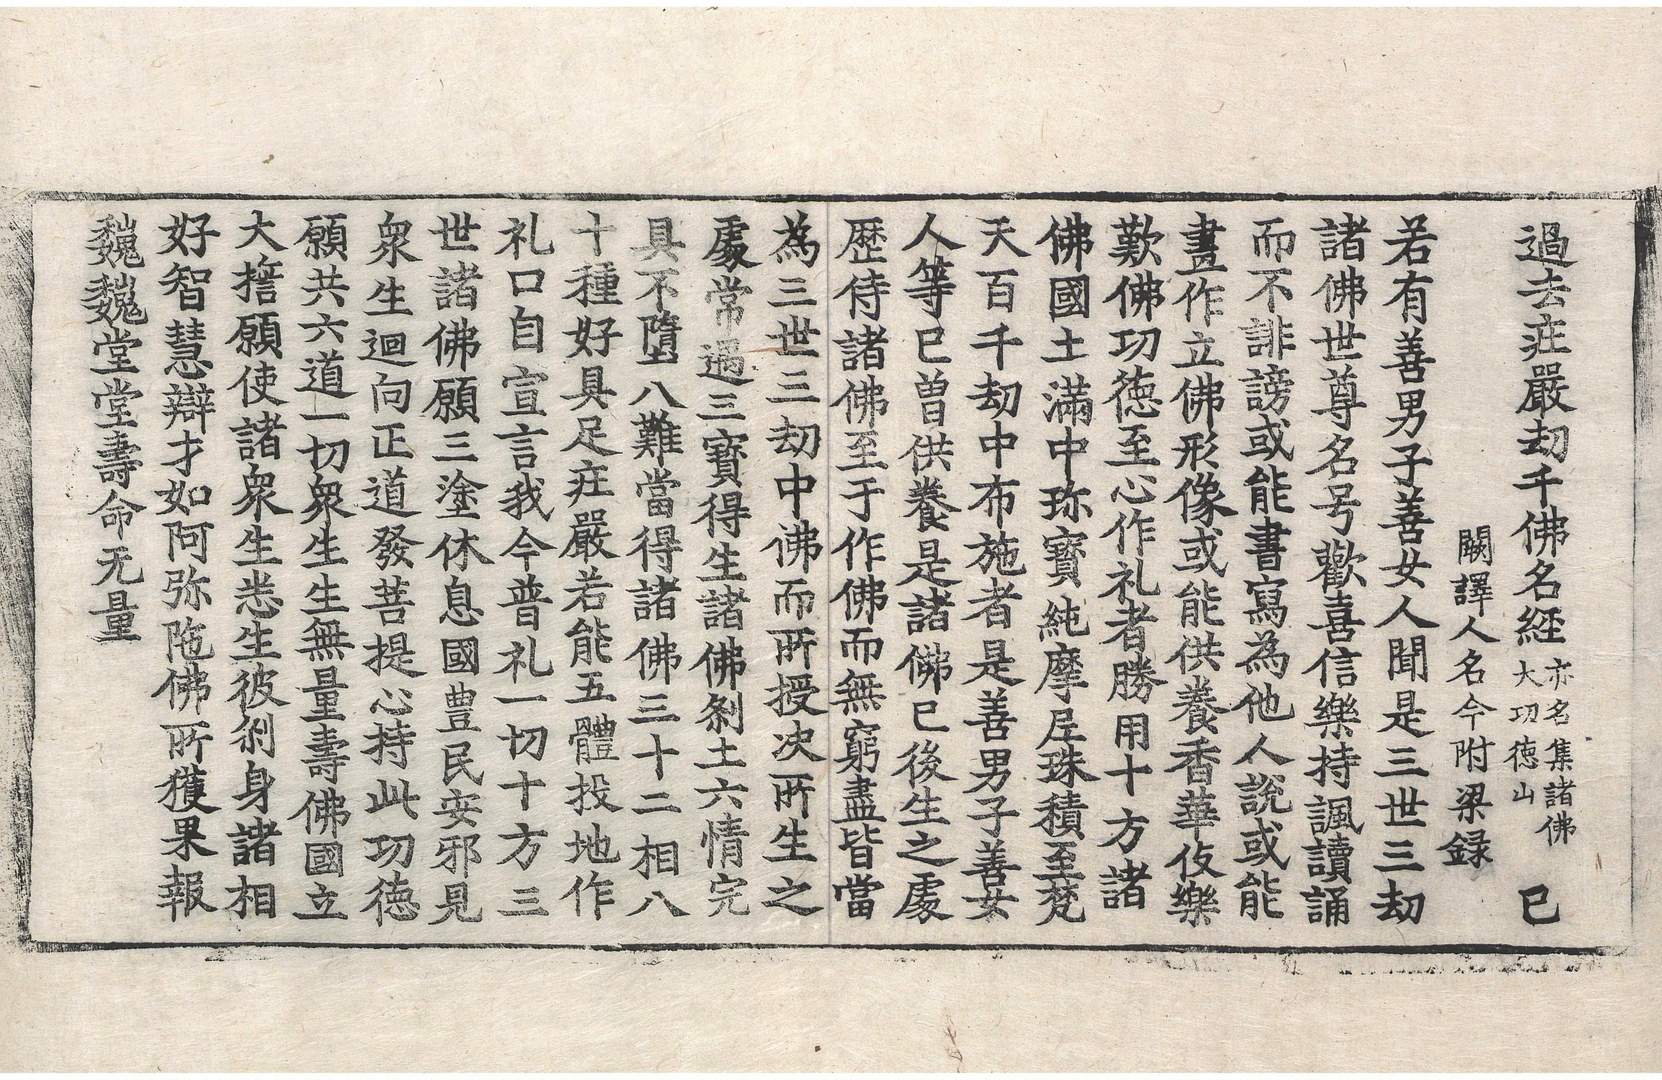 過去莊嚴刼千佛名經 亦名集諸佛大功德山 已
闕譯人名今附梁録
若有善男子善女人聞是三世三刼
諸佛世尊名号歡喜信樂持諷讀誦
而不誹謗或能書寫為他人說或能
畫作立佛形像或能供養香華伎樂
歎佛功德至心作礼者勝用十方諸
佛國土滿中珎寶純摩尼珠積至梵
天百千刼中布施者是善男子善女
人等已曽供養是諸佛已後生之處
歷侍諸佛至于作佛而無窮盡皆當
為三世三刼中佛而所授决所生之
處常遇三寶得生諸佛刹土六情完
具不墮八難當得諸佛三十二相八
十種好具足莊嚴若能五體投地作
礼口自宣言我今普礼一切十方三
世諸佛願三塗休息國豊民安邪見
衆生迴向正道發菩提心持此功德
願共六道一切衆生生無量壽佛國立
大擔願使諸衆生悉生彼刹身諸相
好智慧辯才如阿弥陁佛所獲果報
巍巍堂堂壽命无量